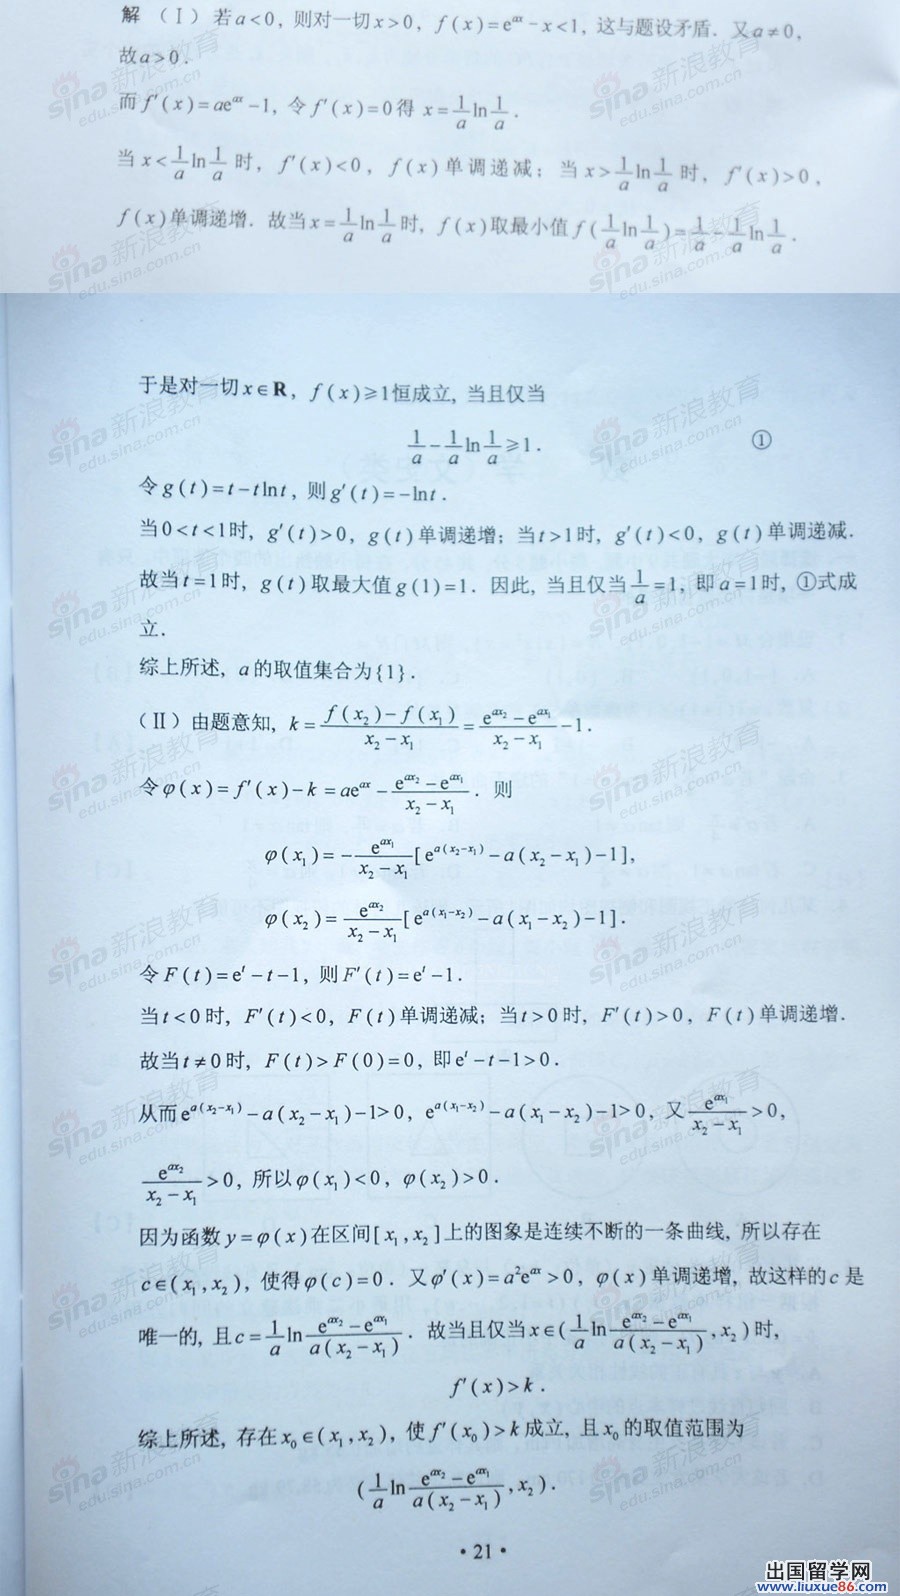 解 (Ⅰ) 若a<0, 则对一切x>0, f(x)=e^{ax}-x<1, 这与题设矛盾. 又a≠0,
故a>0.
而f′(x)=ae^{ax}-1, 令f′(x)=0得 x=\frac{1}{a}ln\frac{1}{a}.
当x<\frac{1}{a}ln\frac{1}{a}时, f′(x)<0, f(x)单调递减; 当x>\frac{1}{a}ln\frac{1}{a}时, f′(x)>0,
f(x)单调递增. 故当x=\frac{1}{a}ln\frac{1}{a}时, f(x)取最小值f(\frac{1}{a}ln\frac{1}{a})=\frac{1}{a}-\frac{1}{a}ln\frac{1}{a}.
于是对一切x∈R, f(x)≥1恒成立, 当且仅当
\frac{1}{a}-\frac{1}{a}ln\frac{1}{a}≥1. ①
令g(t)=t-tlnt, 则g′(t)=-lnt.
当0<t<1时, g′(t)>0, g(t)单调递增; 当t>1时, g′(t)<0, g(t)单调递减.
故当t=1时, g(t)取最大值g(1)=1. 因此, 当且仅当\frac{1}{a}=1, 即a=1时, ①式成
立.
综上所述, a的取值集合为{1}.
(Ⅱ) 由题意知, k=\frac{f(x_2)-f(x_1)}{x_2-x_1}=\frac{e^{ax_2}-e^{ax_1}}{x_2-x_1}-1.
令φ(x)=f′(x)-k=ae^{ax}-\frac{e^{ax_2}-e^{ax_1}}{x_2-x_1}. 则
φ(x_1)=-\frac{e^{ax_1}}{x_2-x_1}[e^{a(x_2-x_1)}-a(x_2-x_1)-1],
φ(x_2)=\frac{e^{ax_2}}{x_2-x_1}[e^{a(x_1-x_2)}-a(x_1-x_2)-1].
令F(t)=e^t-t-1, 则F′(t)=e^t-1.
当t<0时, F′(t)<0, F(t)单调递减; 当t>0时, F′(t)>0, F(t)单调递增.
故当t≠0时, F(t)>F(0)=0, 即e^t-t-1>0.
从而e^{a(x_2-x_1)}-a(x_2-x_1)-1>0, e^{a(x_1-x_2)}-a(x_1-x_2)-1>0, 又\frac{e^{ax_1}}{x_2-x_1}>0,
\frac{e^{ax_2}}{x_2-x_1}>0, 所以φ(x_1)<0, φ(x_2)>0.
因为函数y=φ(x)在区间[x_1,x_2]上的图象是连续不断的一条曲线, 所以存在
c∈(x_1,x_2), 使得φ(c)=0. 又φ′(x)=a^2e^{ax}>0, φ(x)单调递增, 故这样的c是
唯一的, 且c=\frac{1}{a}ln\frac{e^{ax_2}-e^{ax_1}}{a(x_2-x_1)}. 故当且仅当x∈(\frac{1}{a}ln\frac{e^{ax_2}-e^{ax_1}}{a(x_2-x_1)},x_2)时,
f′(x)>k.
综上所述, 存在x_0∈(x_1,x_2), 使f′(x_0)>k成立, 且x_0的取值范围为
(\frac{1}{a}ln\frac{e^{ax_2}-e^{ax_1}}{a(x_2-x_1)},x_2).
·21·
sina新浪教育
edu.sina.com.cn
出国留学网
www.liuxue86.com